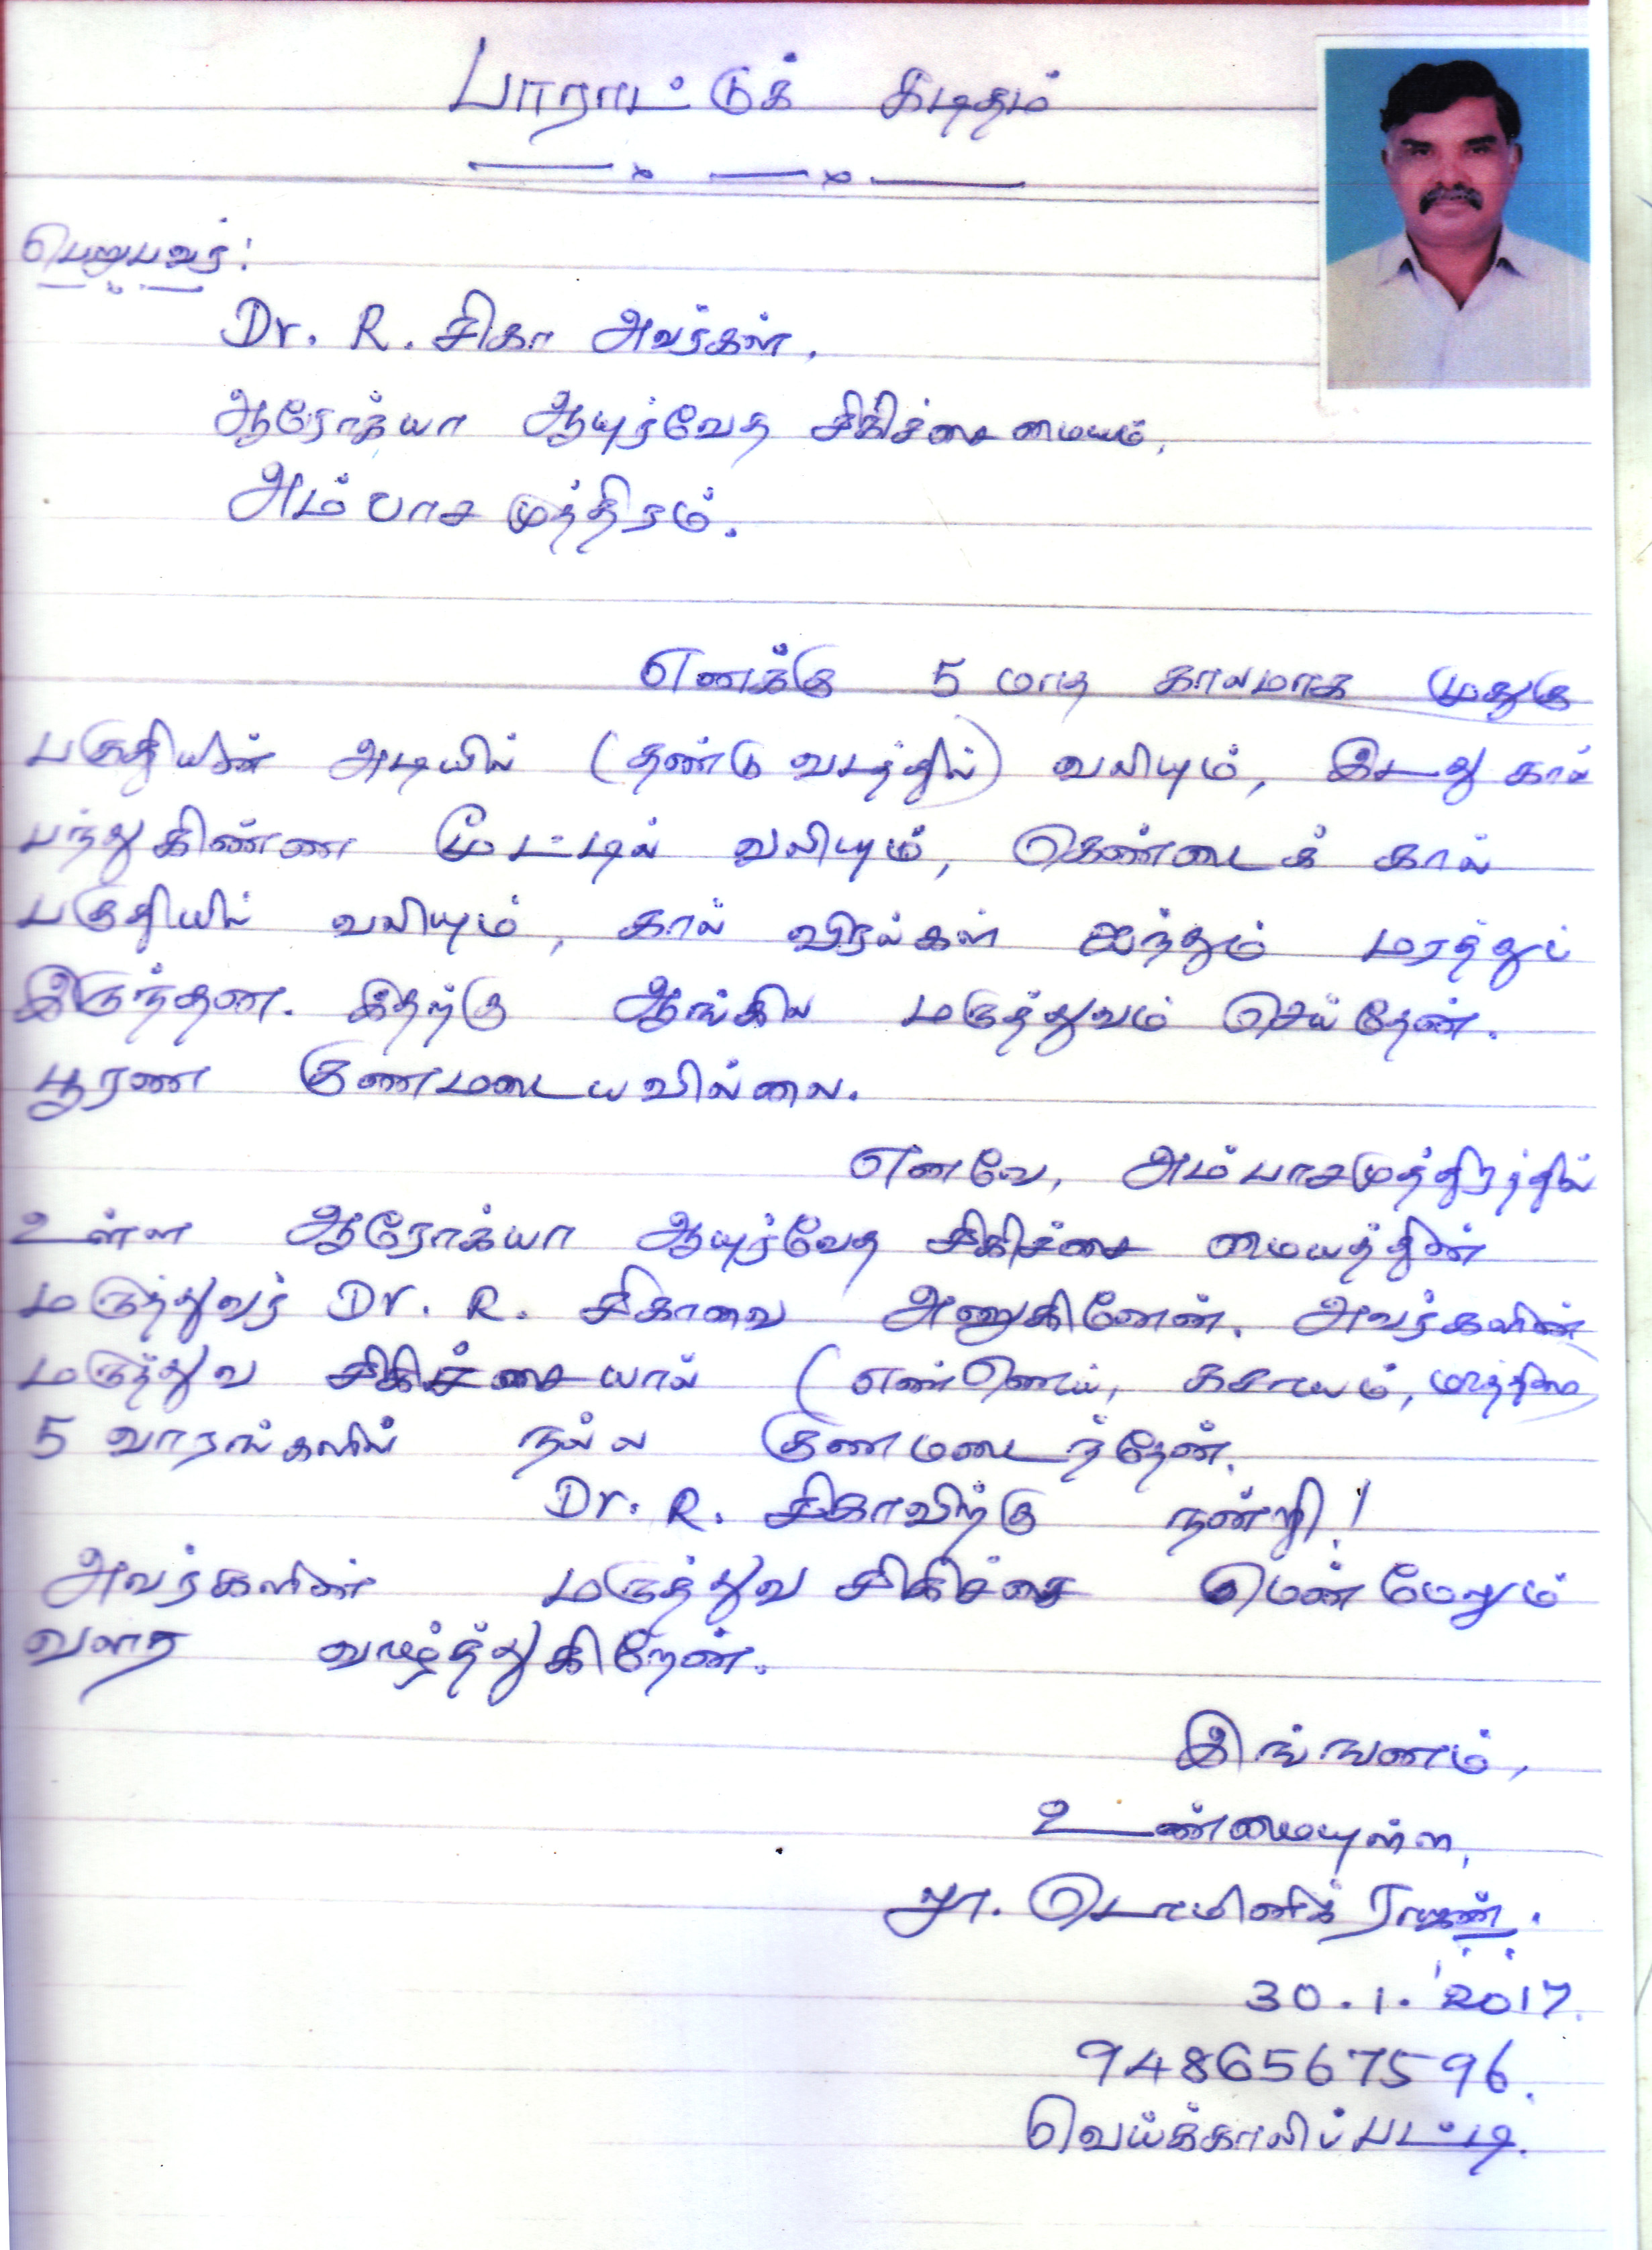 பாராட்டுக் கடிதம்
பெறுபவர்:
Dr. R. சிகா அவர்கள்.
ஆரோக்யா ஆயுர்வேத சிகிச்சை மையம்,
அம்பாசமுத்திரம்.
எனக்கு 5 மாத காலமாக முதுகு
பகுதியின் அடியில் (தண்டு வடத்தில்) வலியும், இடது கால்
பந்துகிண்ண மூட்டில் வலியும், கெண்டைக் கால்
பகுதியில் வலியும், கால் விரல்கள் ஐந்தும் மரத்துப்
இருந்தன. இதற்கு ஆங்கில மருத்துவம் செய்தேன்.
பூரண குணமடையவில்லை.
எனவே, அம்பாசமுத்திரத்தில்
உள்ள ஆரோக்யா ஆயுர்வேத சிகிச்சை மையத்தின்
மருத்துவர் Dr. R. சிகாவை அணுகினேன். அவர்களின்
மருத்துவ சிகிச்சையால் (எண்ணெய், கசாயம், மாத்திரை)
5 வாரங்களில் நல்ல குணமடைந்தேன்.
Dr. R. சிகாவிற்கு நன்றி!
அவர்களின் மருத்துவ சிகிச்சை மென்மேலும்
வளர வாழ்த்துகிறேன்.
இங்ஙனம்,
உண்மையுள்ள,
டொமினிக் ராஜன்.
30.1.2017.
9486567596.
வெய்க்காலிப்பட்டி.